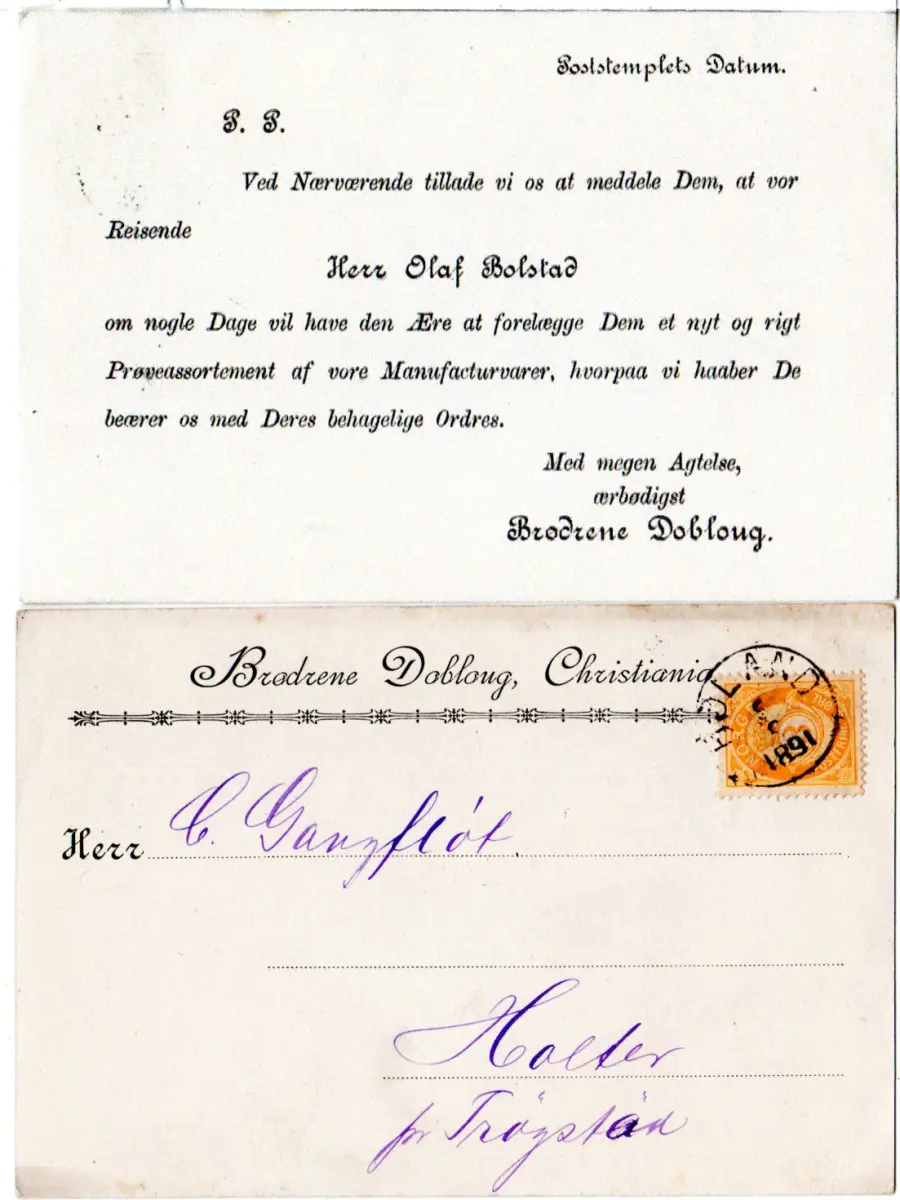 Poststemplets Datum.
P. P.
Ved Nærværende tillade vi os at meddele Dem, at vor
Reisende
Herr Olaf Bolstad
om nogle Dage vil have den Ære at forelægge Dem et nyt og rigt
Prøveassortement af vore Manufacturvarer, hvorpaa vi haaber De
beærer os med Deres behagelige Ordres.
Med megen Agtelse,
ærbødigst
Brødrene Dobloug.
Brødrene Dobloug, Christiania
HØLAND
1891
NORGE
3
Herr C. Gangfløt.
Holter
pr Trøgstad